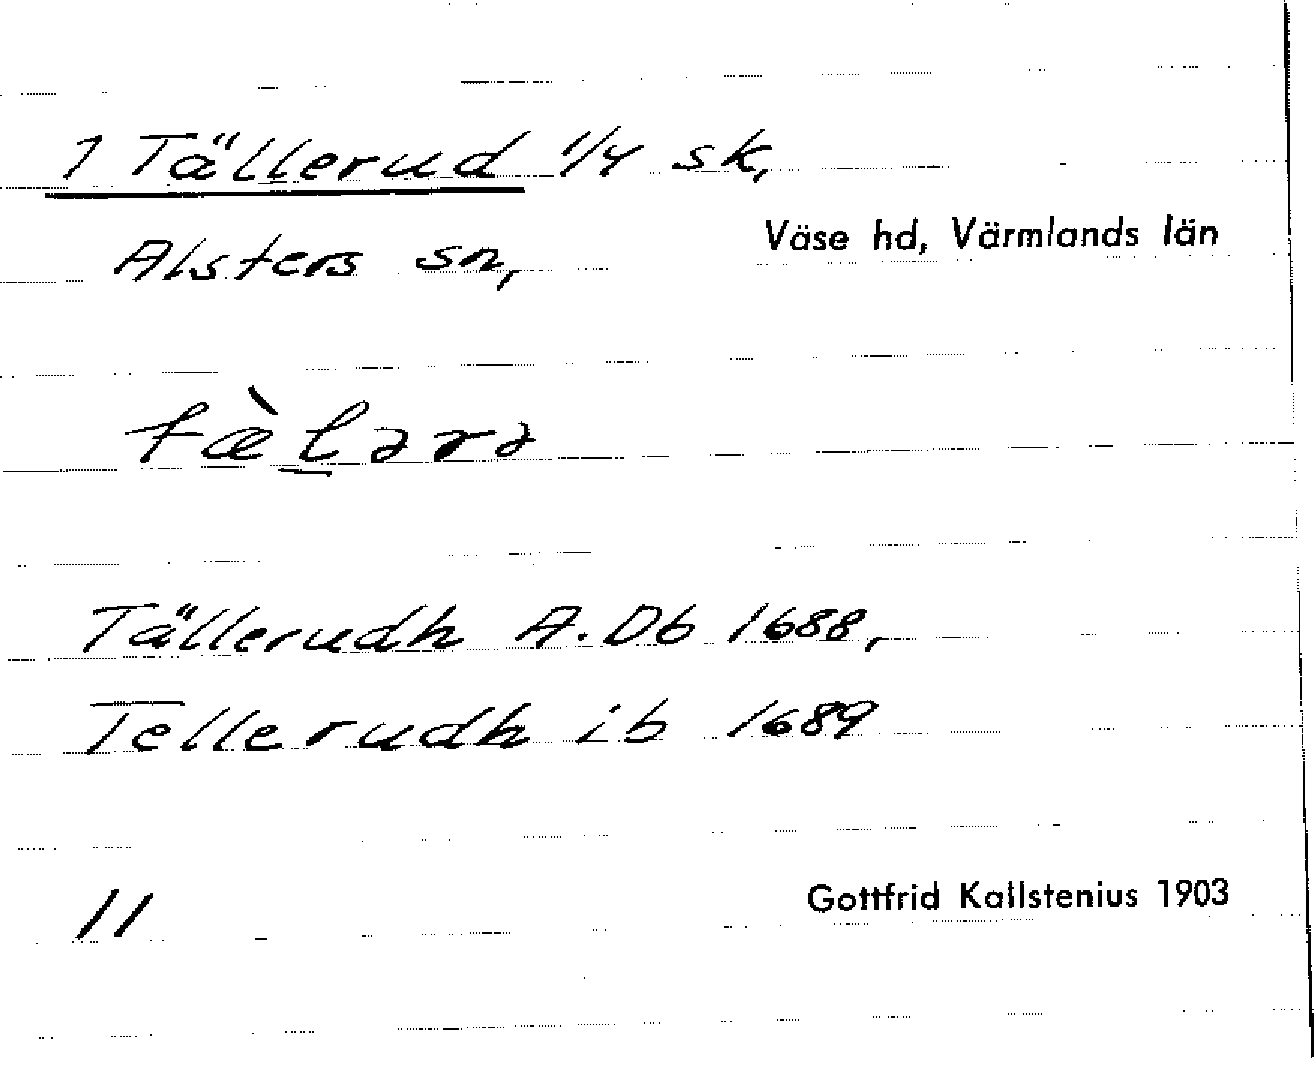 1 Tällerud 1/4 sk,
Alsters sn,
Väse hd, Värmlands län
tæ̀l̲ərə
Tällerudh A.Db 1688,
Tellerudh ib 1689
11
Gottfrid Kallstenius 1903